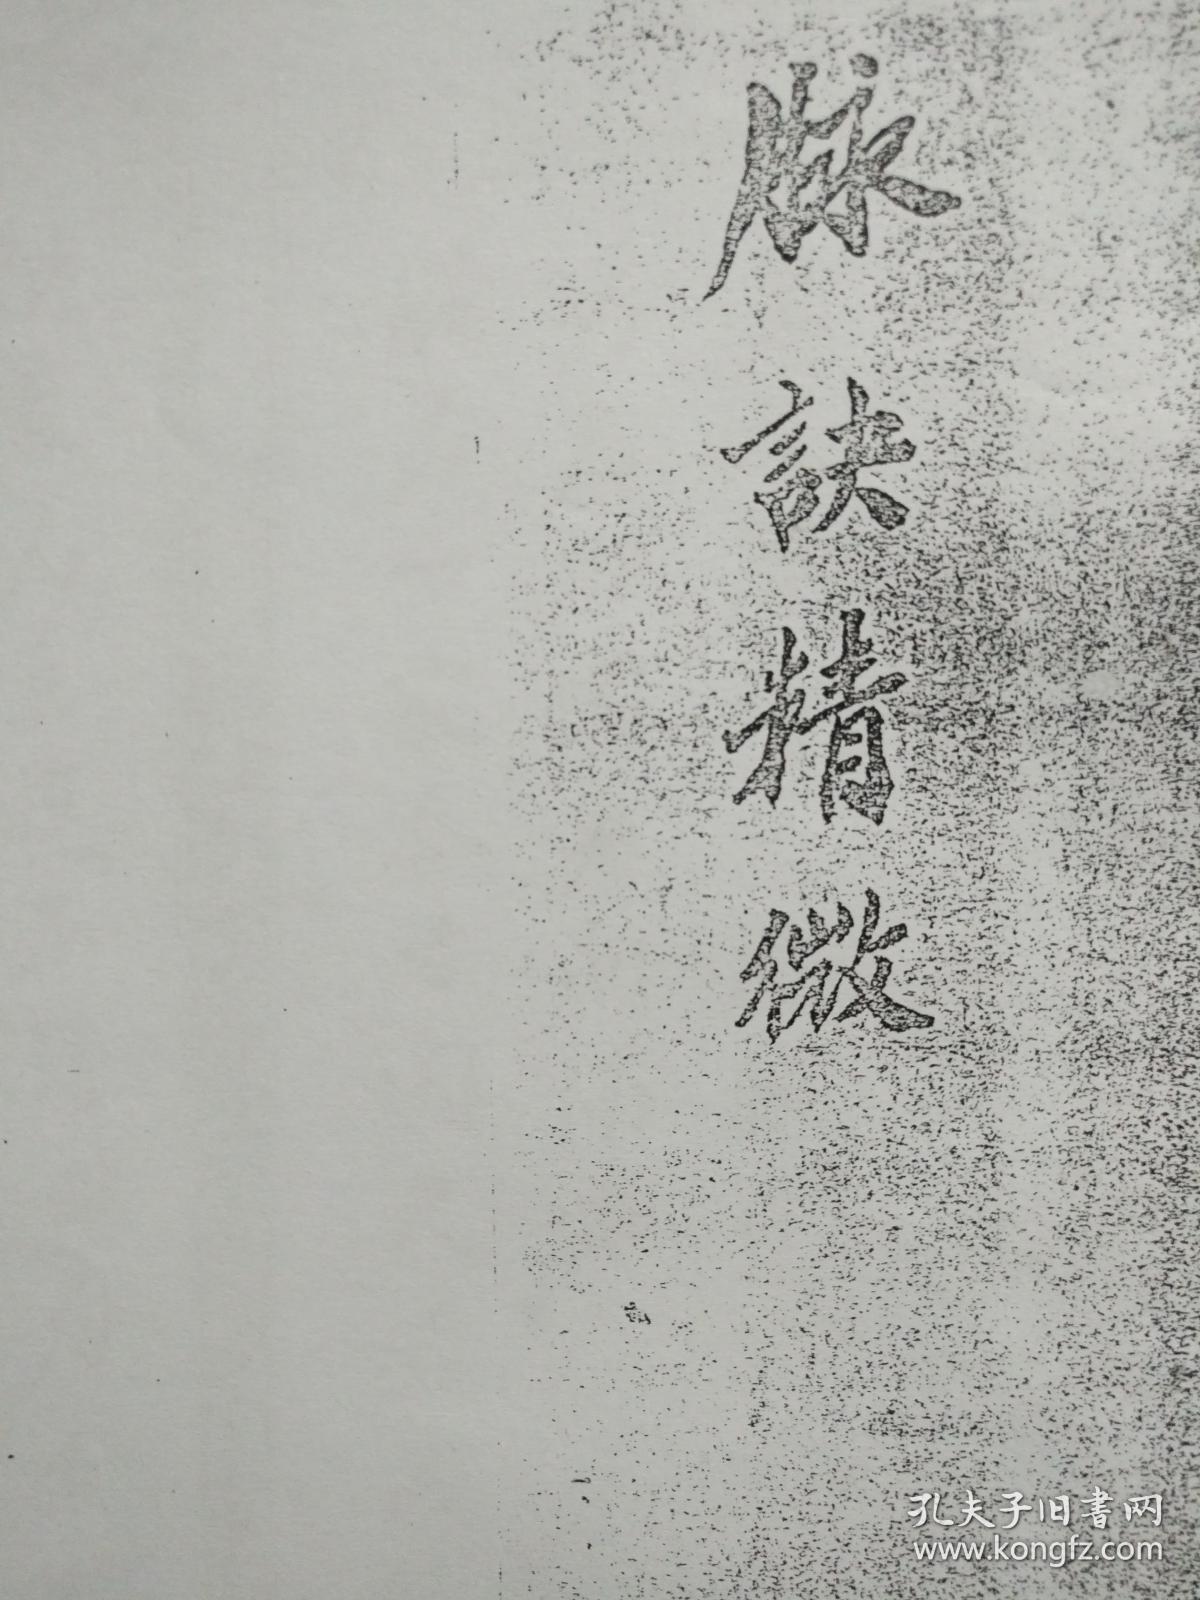 脉訣精微
孔夫子旧書网
www.kongfz.com